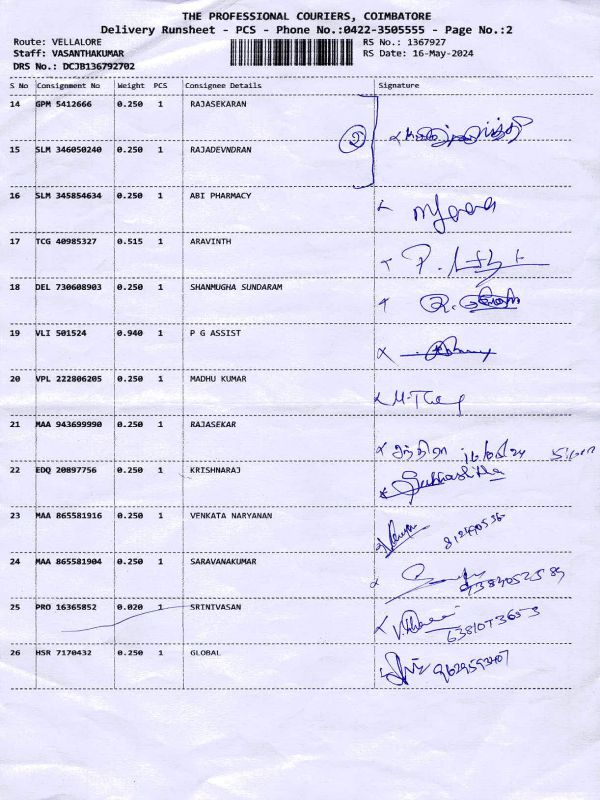 THE PROFESSIONAL COURIERS, COIMBATORE
Delivery Runsheet - PCS - Phone No.:0422-3505555 - Page No.:2
Route: VELLALORE RS No.: 1367927
Staff: VASANTHAKUMAR RS Date: 16-May-2024
DRS No.: DCJB136792702
S No Consignment No Weight PCS Consignee Details Signature
14 GPM 5412666 0.250 1 RAJASEKARAN
2
15 SLM 346050240 0.250 1 RAJADEVNDRAN
16 SLM 345854634 0.250 1 ABI PHARMACY
17 TCG 40985327 0.515 1 ARAVINTH
18 DEL 730608903 0.250 1 SHANMUGHA SUNDARAM
19 VLI 501524 0.940 1 P G ASSIST
20 VPL 222806205 0.250 1 MADHU KUMAR
21 MAA 943699990 0.250 1 RAJASEKAR
22 EDQ 20897756 0.250 1 KRISHNARAJ
23 MAA 865581916 0.250 1 VENKATA NARYANAN
24 MAA 865581904 0.250 1 SARAVANAKUMAR
25 PRO 16365852 0.020 1 SRINIVASAN 6381073653
26 HSR 7170432 0.250 1 GLOBAL